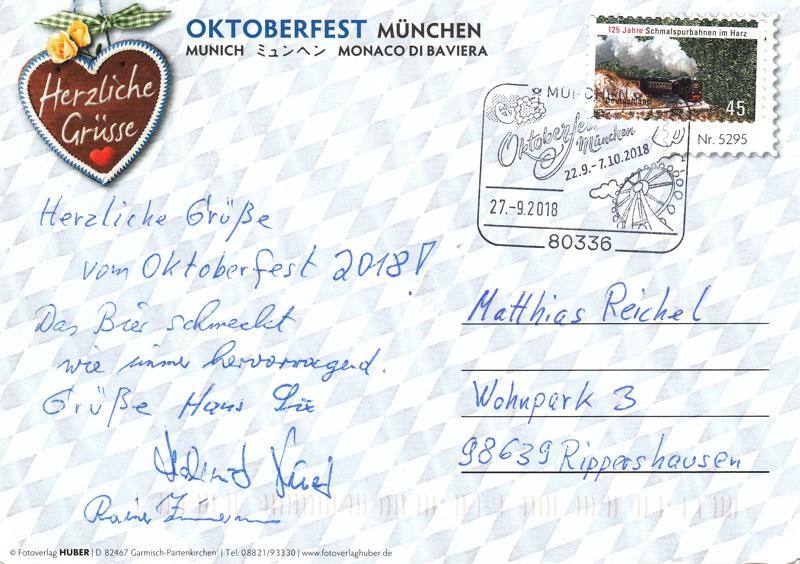 OKTOBERFEST MÜNCHEN
MUNICH ミュンヘン MONACO DI BAVIERA
Herzliche
Grüsse
125 Jahre Schmalspurbahnen im Harz
Deutschland
45
Nr. 5295
MÜNCHEN
Oktoberfest
München
22.9.-7.10.2018
27.-9.2018
80336
Herzliche Grüße
vom Oktoberfest 2018!
Das Bier schmeckt
wie immer hervorragend.
Grüße Hans
Rainer
Matthias Reichel
Wohnpark 3
98639 Rippershausen
© Fotoverlag HUBER | D 82467 Garmisch-Partenkirchen | Tel: 08821/93330 | www.fotoverlaghuber.de